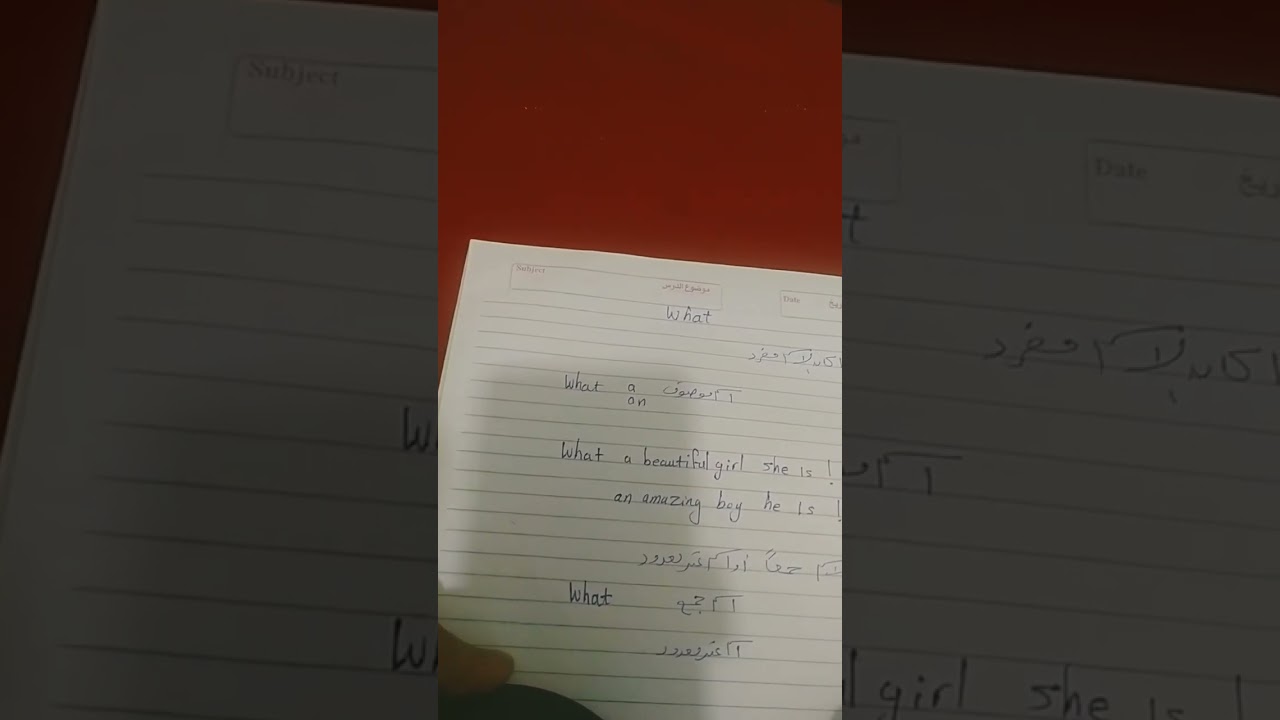 Subject موضوع الدرس Date
What
الاسم مفرد
What a اسم موصوف
an
What a beautiful girl she is !
an amazing boy he is !
جمعاً أو اسم غير معدود
What اسم جمع
اسم غير معدود